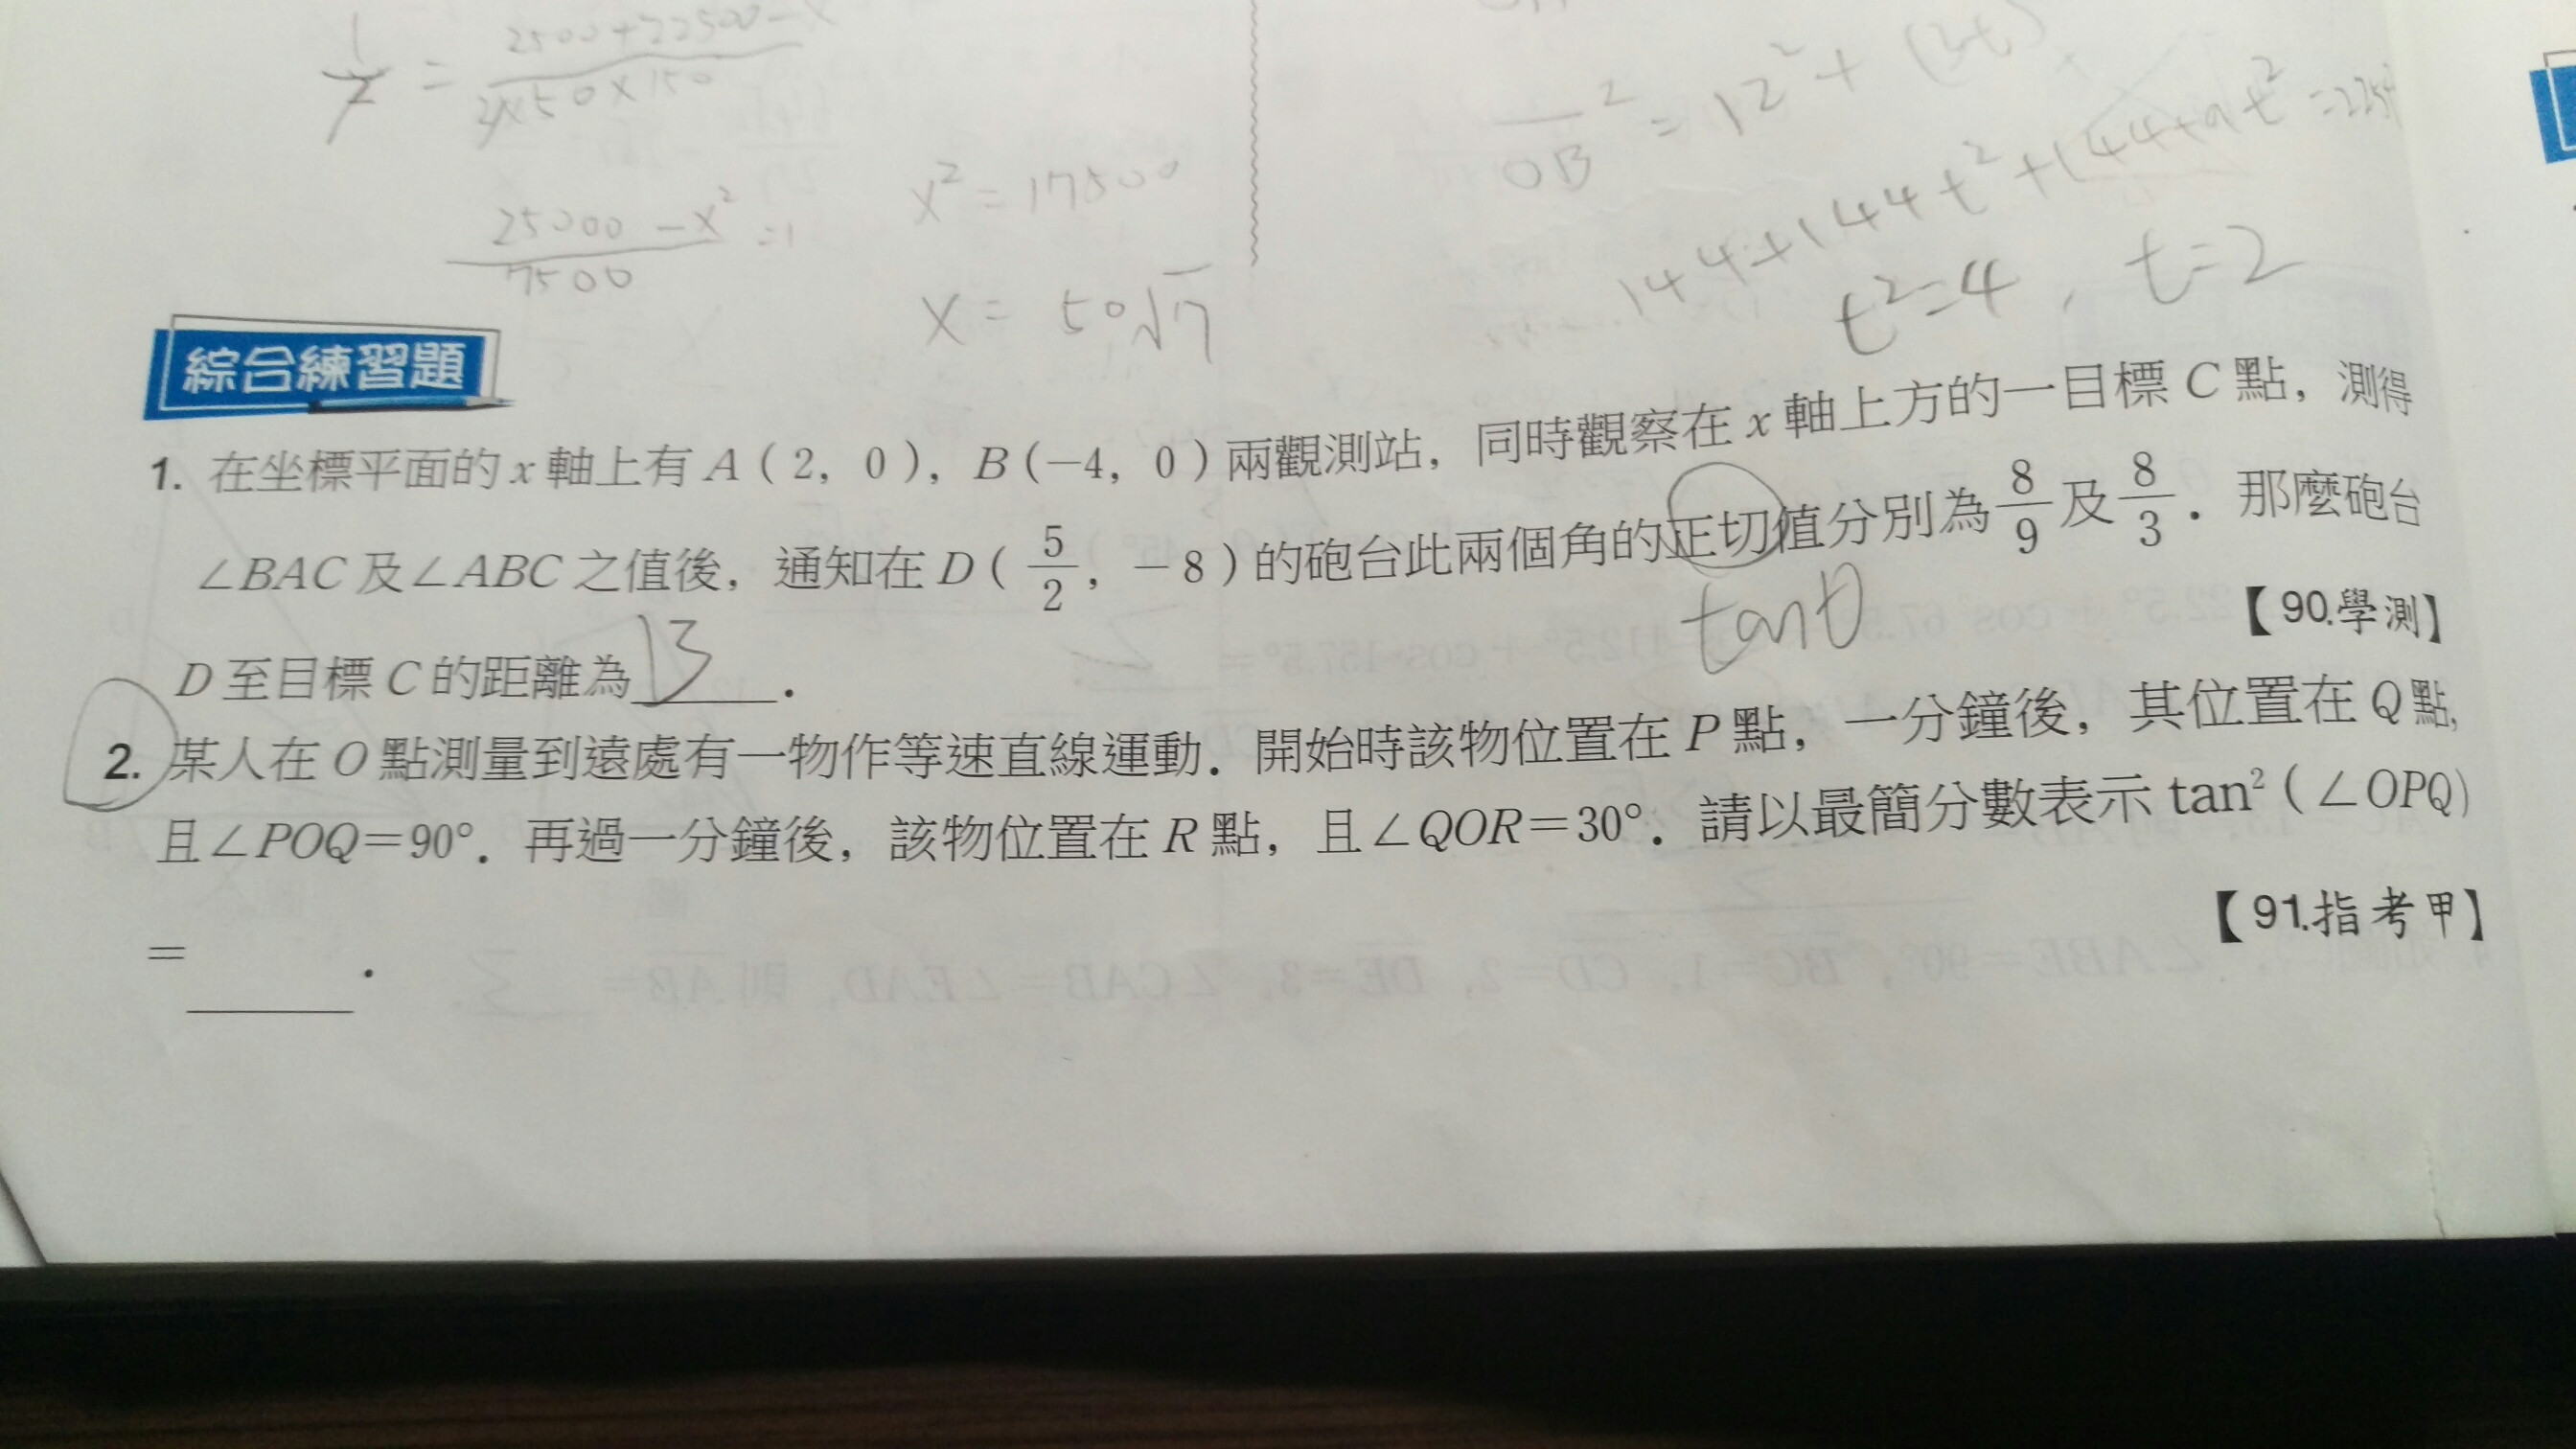 1/2 = 2500+22500-x / 2×50×150
25000-x² / 7500 = 1
x² = 17500
x = 50√7
OB² = 12² + (3t)
144+144t²+144+9t² =225t
t²=4, t=2
綜合練習題
1. 在坐標平面的 x 軸上有 A(2, 0), B(−4, 0)兩觀測站，同時觀察在 x 軸上方的一目標 C 點，測得
∠BAC 及∠ABC 之值後，通知在 D(5/2, −8)的砲台此兩個角的正切值分別為 8/9 及 8/3．那麼砲台
tanθ
D 至目標 C 的距離為 13．
【90.學測】
2. 某人在 O 點測量到遠處有一物作等速直線運動．開始時該物位置在 P 點，一分鐘後，其位置在 Q 點，
且∠POQ=90°．再過一分鐘後，該物位置在 R 點，且∠QOR=30°．請以最簡分數表示 tan²(∠OPQ)
=______．
【91.指考甲】